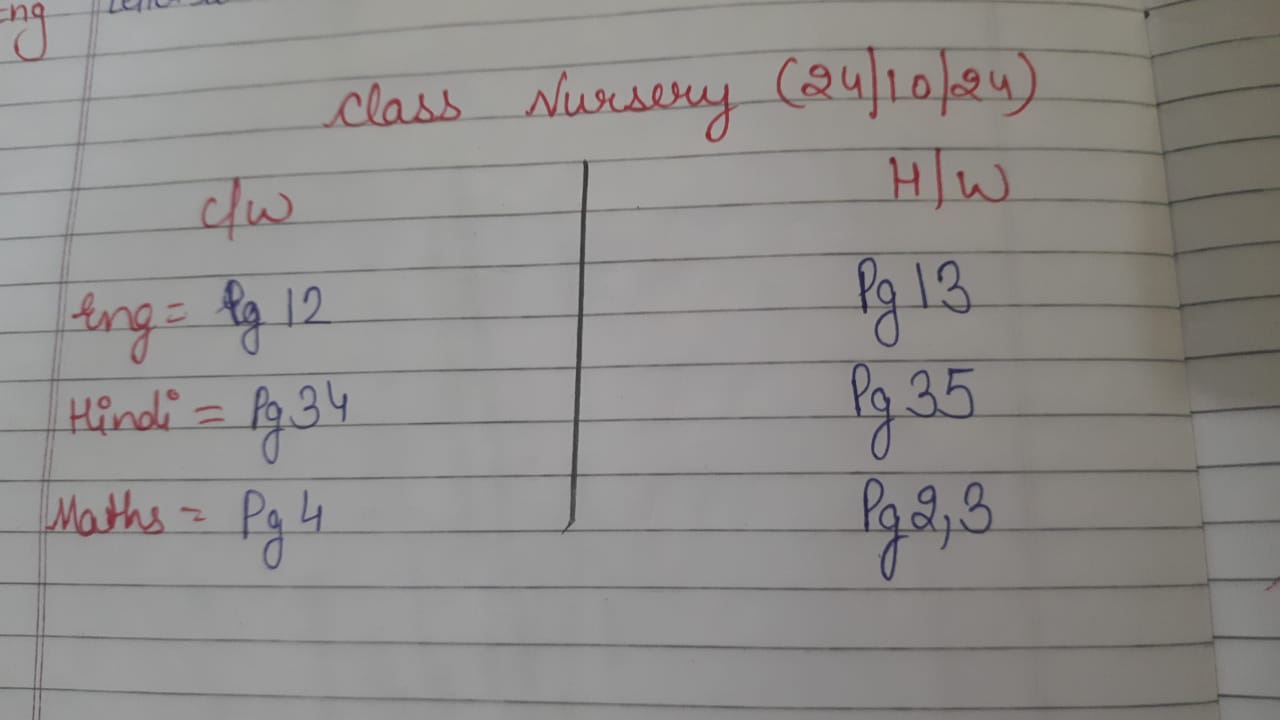 Eng
Class Nursery (24/10/24)
C/W H/W
Eng = Pg 12 Pg 13
Hindi = Pg 34 Pg 35
Maths = Pg 4 Pg 2,3